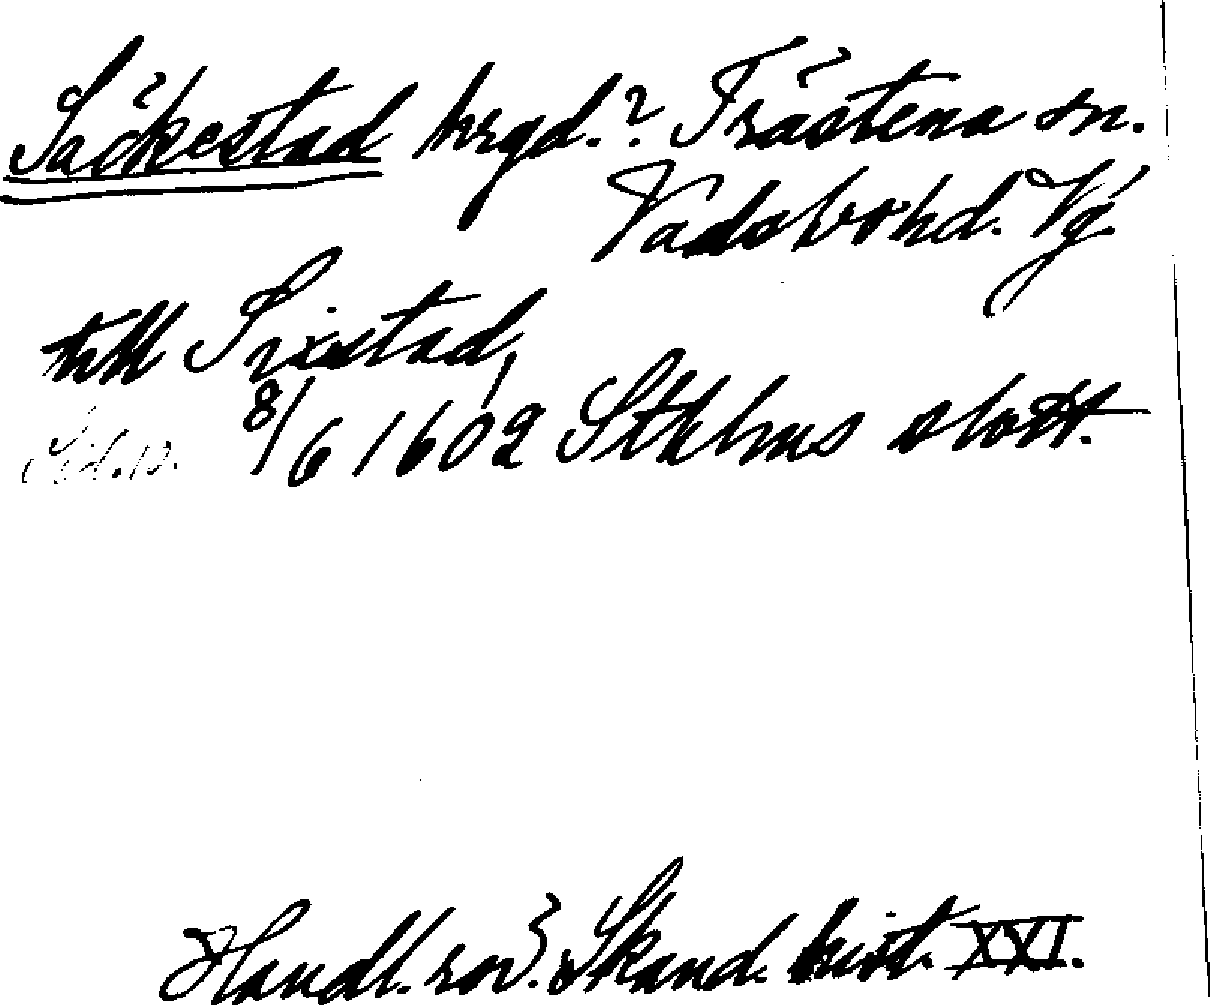 Säckestad hrgd.? Trästena sn.
Vadsbo hd. Vg.
till Sixstad,
Sid. 10. 8/6 1602 Sthlms slott.
Handl. rör. Skand. hist. XXI.